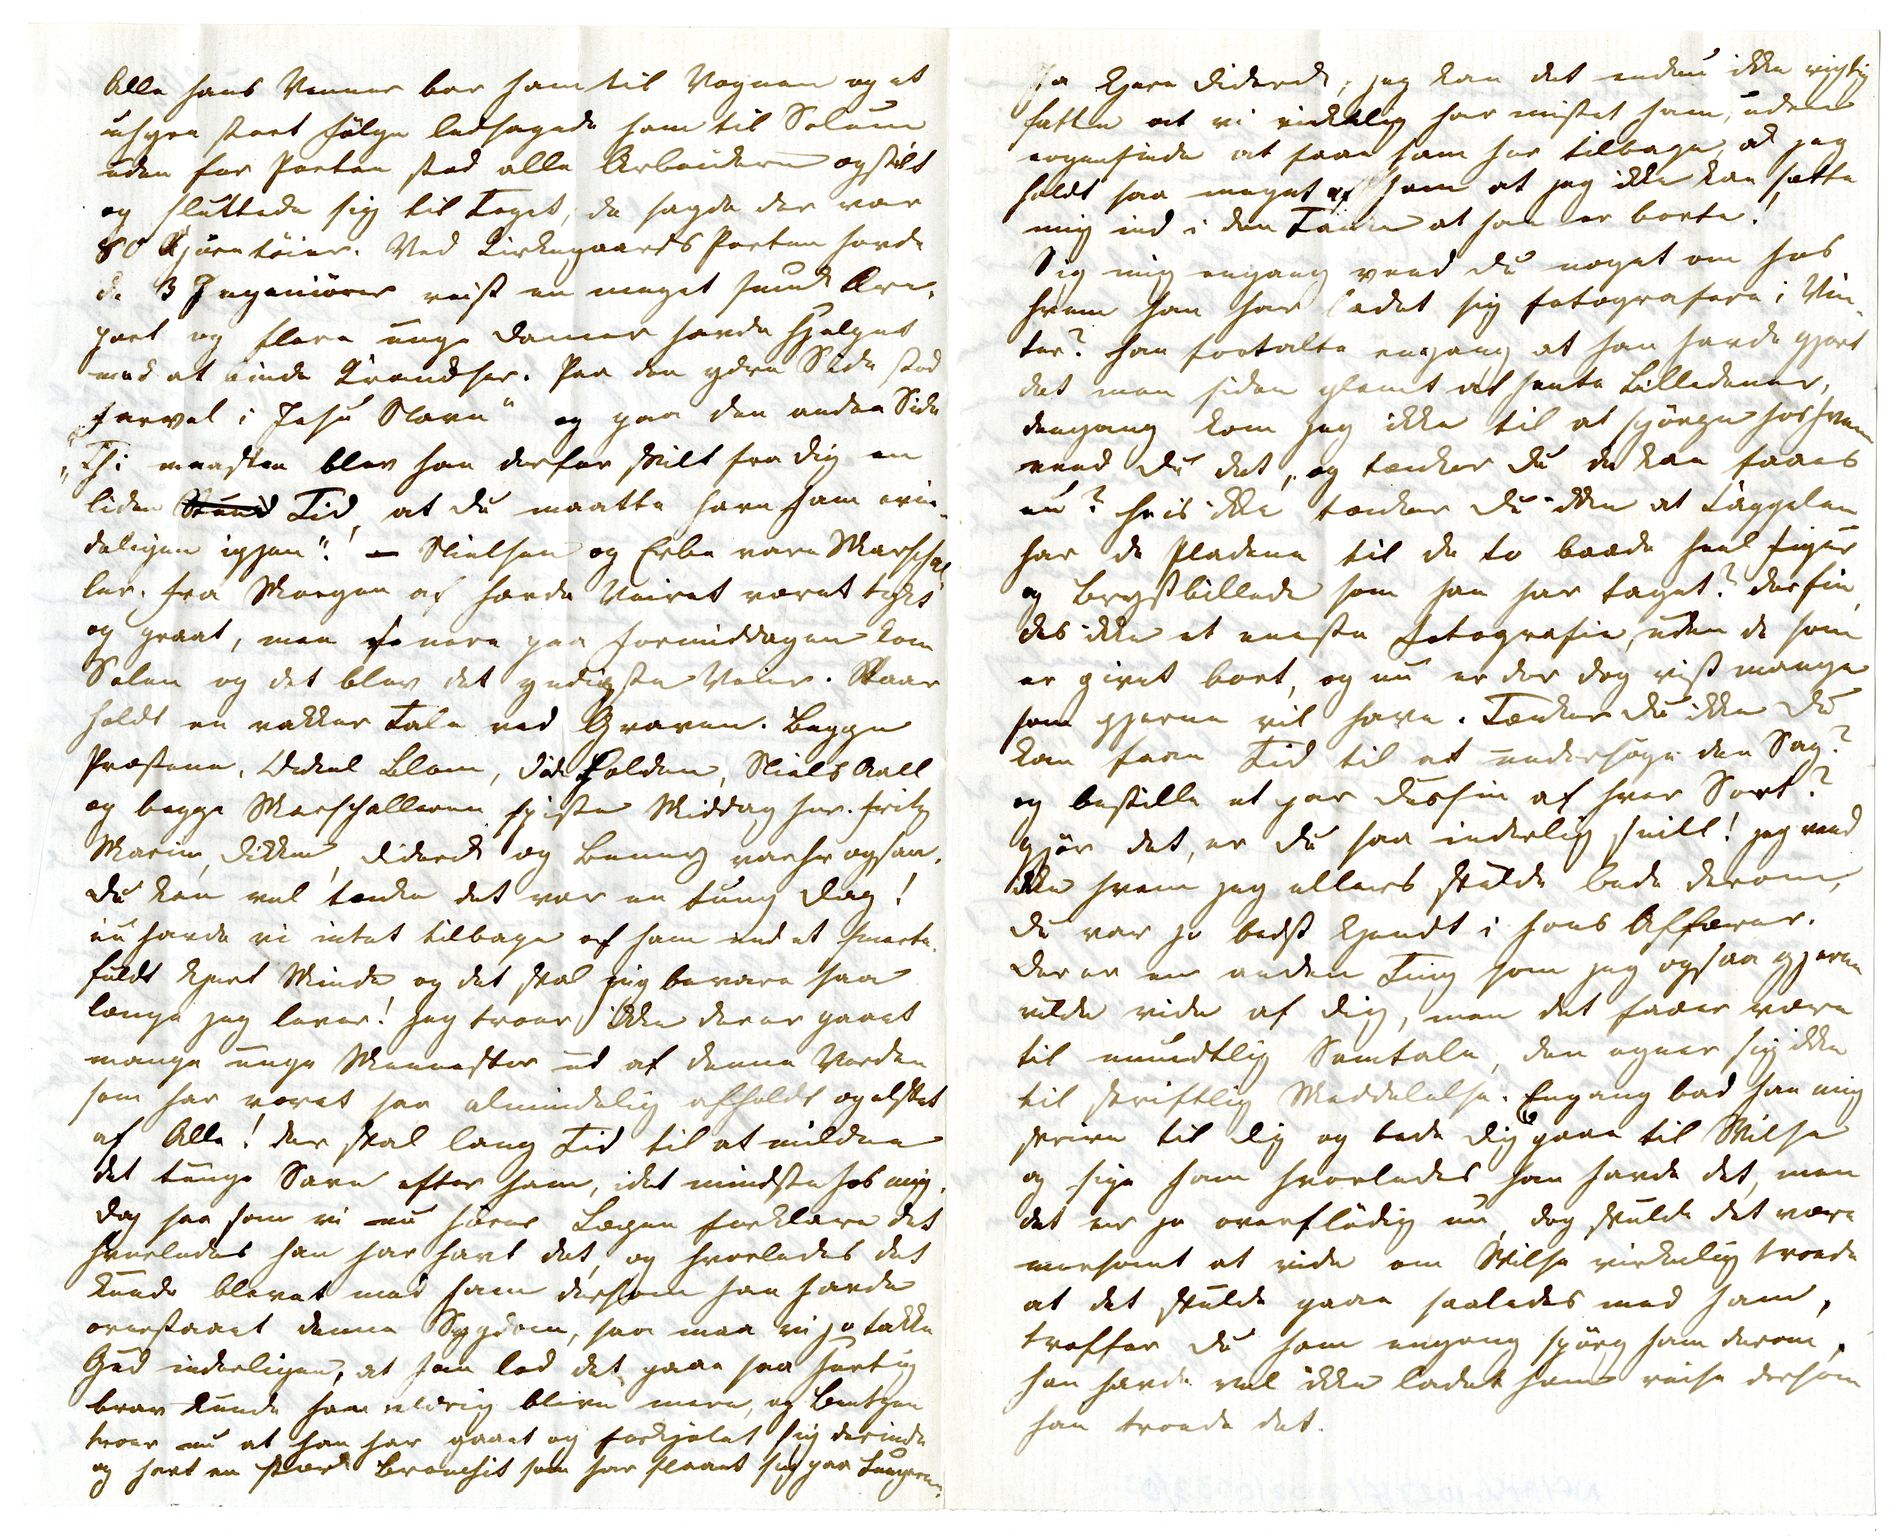 Alle hans Venner bar ham til Vognen og et
uhyre stort Følge ledsagede ham til Solum
uden for Porten stod alle Arbeiderne opstilt
og sluttede sig til Toget, de sagde der var
80 Kjøretøier. Ved Kirkegaards Porten havde
de 3 Ingeniører reist en meget smuk Ære-
port og flere unge Damer havde hjelpet
med at binde Krandser. Paa den ydre Side stod
"Farvel i Jesu Navn" og paa den anden Side
"Thi maaskee blev han derfor skilt fra dig en
liden Stund Tid, at du maatte have ham evin-
deligen igjen"! — Nielsen og Erbe vare Marschal
ler. Fra Morgen af havde Veiret været tykt
og graat, men senere paa Formiddagen kom
Solen og det blev det yndigste Veir. Skaar
holdt en vakker Tale ved Graven. Begge
Præstene, Didrik Blom, Folden, Niels Aall
og begge Marschallerne spiste Middag her. Fritz
Marie, Dikken, Diderik og Benny var her ogsaa.
Du kan vel tænke det var en tung Dag!
nu havde vi intet tilbage af ham end et smerte-
fuldt kjert Minde og det skal jeg bevare saa
længe jeg lever! Jeg troer ikke der er gaaet
mange unge Mennesker ud af denne Verden
som har været saa almindelig afholdt og elsket
af Alle! der skal lang Tid til at mildne
det tunge Savn efter ham, idet mindste hos mig.
Dog saa som vi nu hører Lægen forklare det
hvorledes han har havt det, og hvorledes det
kunde blevet med ham dersom han havde
overstaaet denne Sygdom, saa maa vi jo takke
Gud inderligen, at han lod det gaae saa hurtig
brav kunde han aldrig blive mere, og Bentzen
troer nu at han har gaaet og forkjølet sig derinde
og havt en stærk Bronchit som har slaaet sig paa Lungerne.
Ja kjere Diderik, jeg kan det endnu ikke rigtig
fatte at vi virkelig har mistet ham, uden
nogensinde at faae ham her tilbage, ak jeg
holdt saa meget af ham at jeg ikke kan sætte
mig ind i den Tanke at han er borte!
Sig mig engang veed du noget om hos
hvem han har ladet sig fotografere i Vin-
ter? han fortalte engang at han havde gjort
det men siden glemt at hente Billederne,
dengang kom jeg ikke til at spørge hos hvem
veed du det, og tænker du de kan faaes
nu? hvis ikke tænker du ikke at
har de Pladene til de to baade heel Figur
og Brystbillede som han har taget? der fin-
des ikke et eneste Fotografie, uden de som
er givet bort, og nu er der dog vist mange
som gjerne vil have. Tænker du ikke du
kan faae Tid til at undersøge den Sag?
og bestille et par Dussin af hver Sort?
gjør det, er du saa inderlig snill! jeg veed
ikke hvem jeg ellers skulde bede derom,
du var jo bedst kjendt i hans Affærer.
Der er en anden Ting som jeg ogsaa gjerne
vilde vide af dig, men det faaer være
til mundtlig Samtale, den egner sig ikke
til skriftlig Meddelelse. Engang bad han mig
skrive til dig og bede dig gaae til Wilse
og sige ham hvorledes han havde det, men
det er jo overflødig nu, dog skulde det være
morsomt at vide om Wilse virkelig troede
at det skulde gaae saaledes med ham,
træffer du ham engang spørg ham derom,
han havde vel ikke ladet ham reise dersom
han troede det.